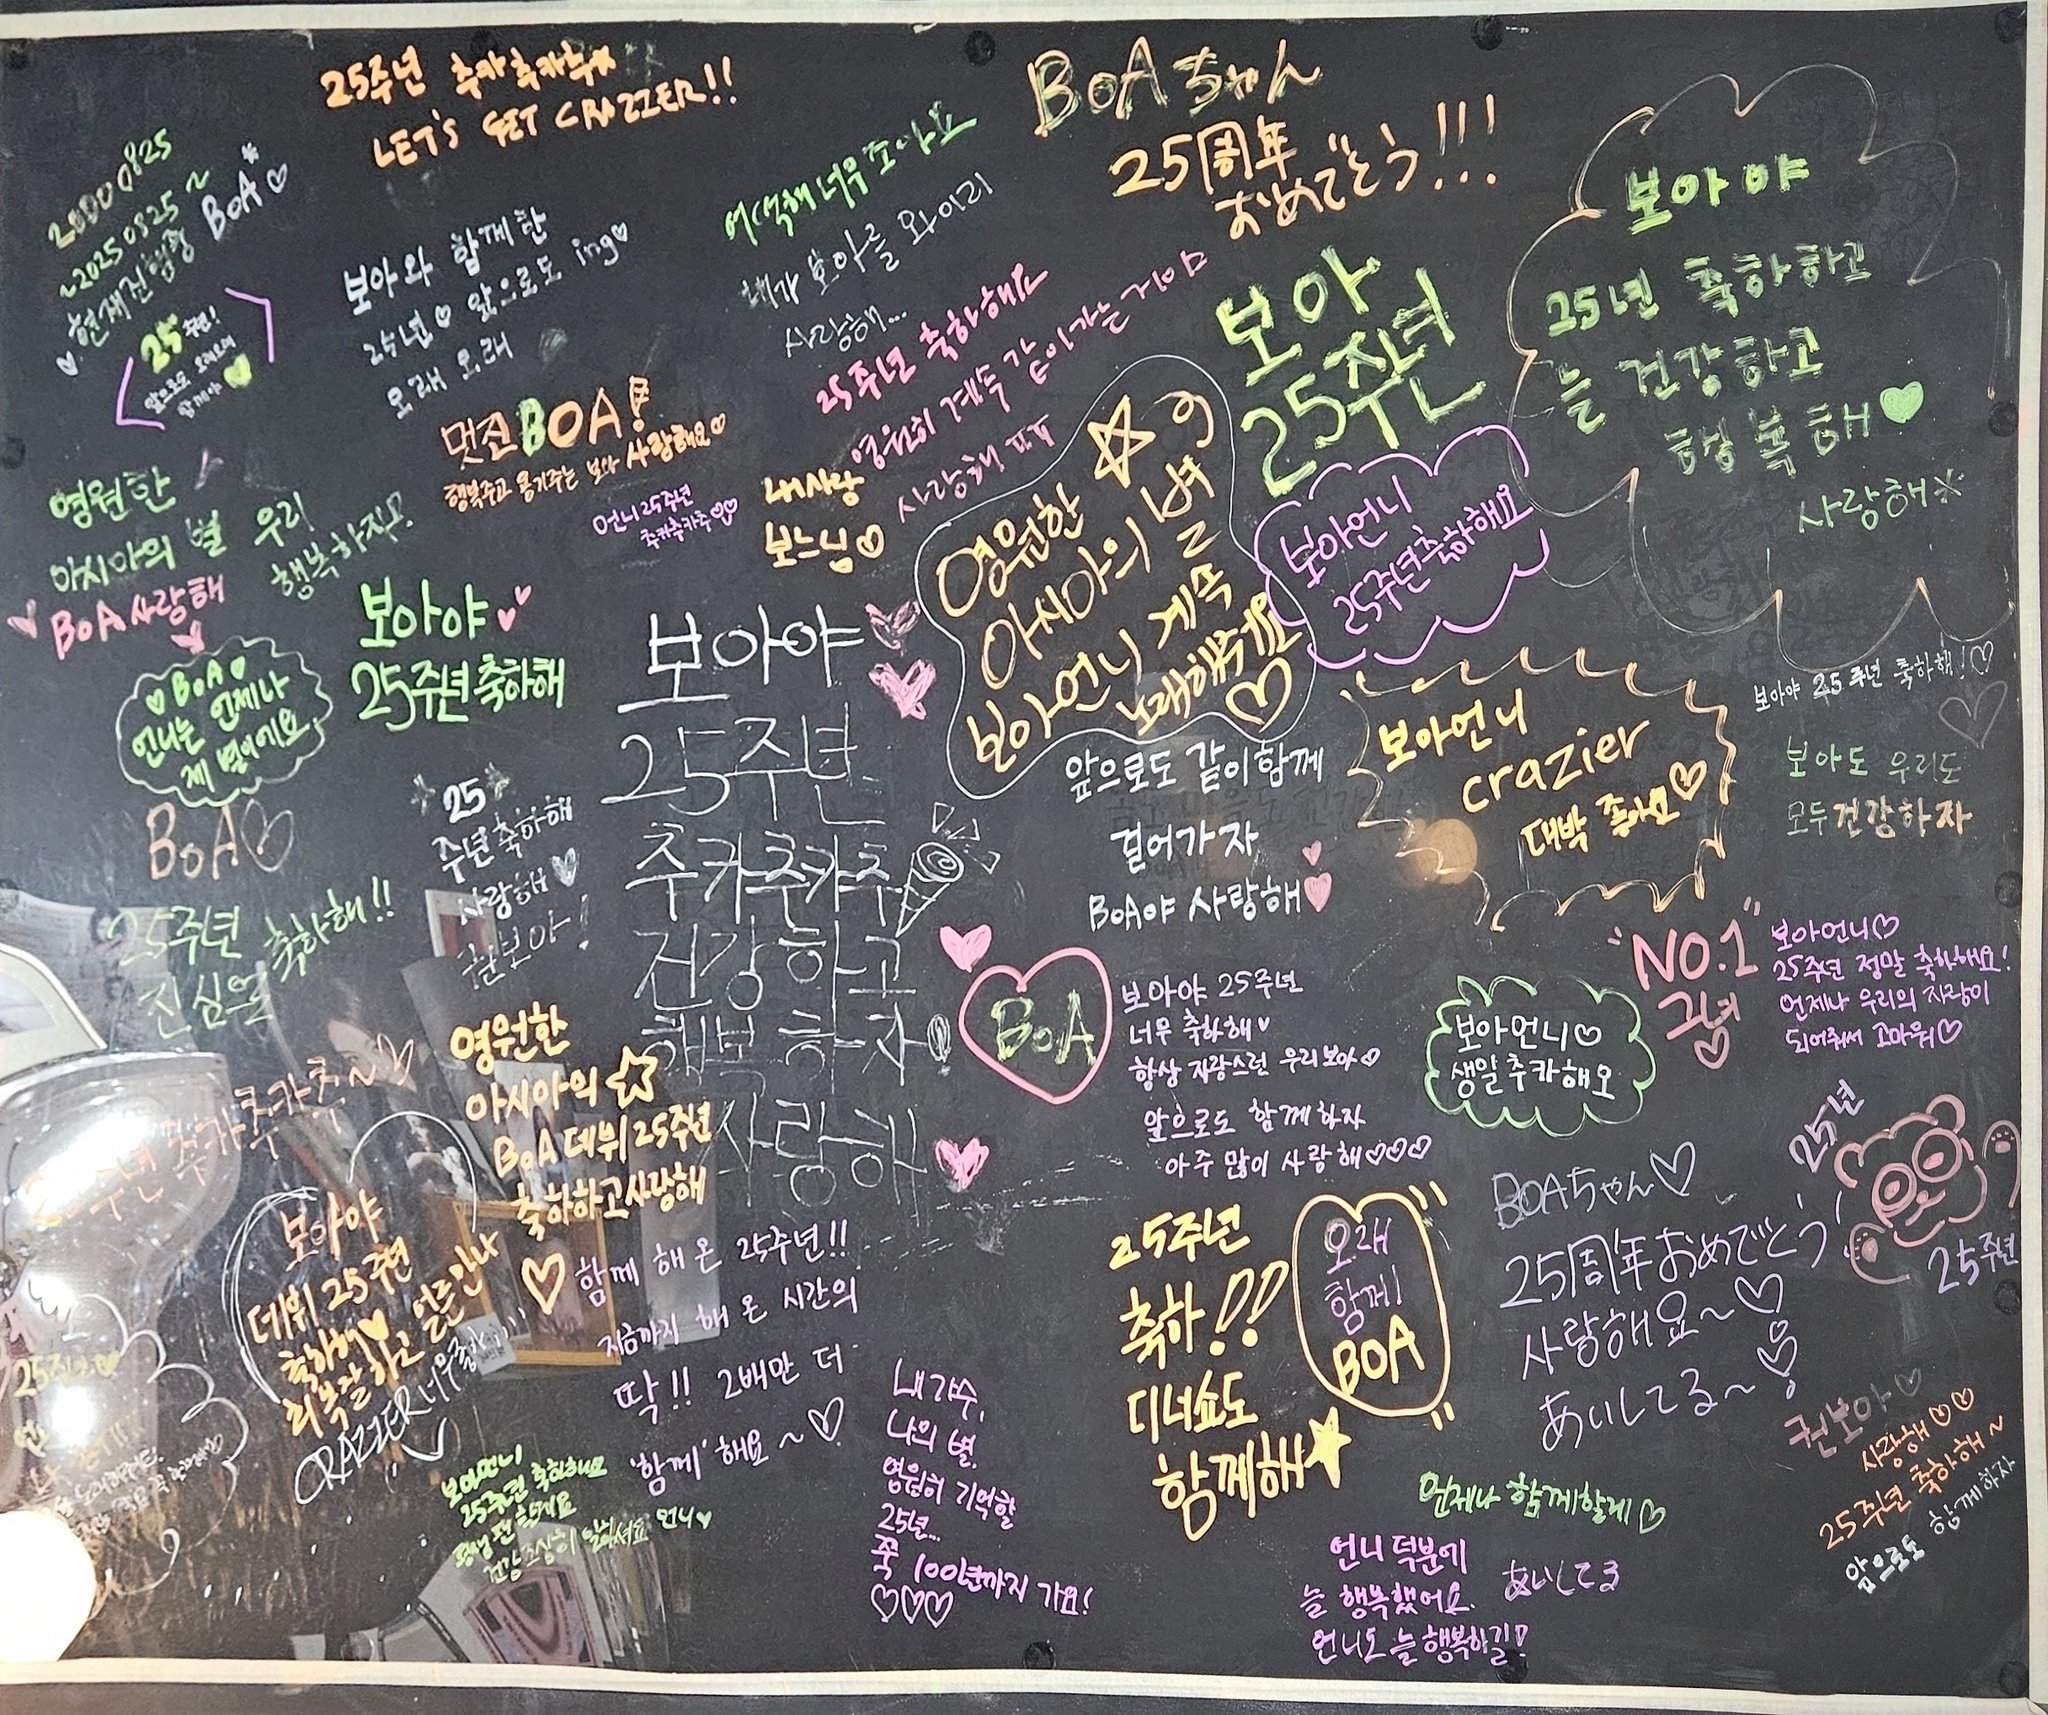 25주년 추카추카추
LET'S GET CRAZZER!!
20000825
~20250825~
현재진행중 BoA
25주년!
앞으로 오래오래
함께야
보아와 함께한
25년 앞으로도 ing
오래 오래
어떡해 너무 조아요
내가 보아를 와이리
사랑해...
BoAちゃん
25周年
おめでとう!!!
보아야
25년 축하하고
늘 건강하고
행복해
사랑해
보아
25주년
25주년 축하해요
영원히 계속 같이가는거야
사랑해 ㅠㅠ
멋진 BOA!
행복주고 용기주는 보아 사랑해요
언니 25주년
추카추카추
내사랑
보느님
영원한
아시아의 별
보아언니 계속
노래해주세요
보아언니
25주년축하해요
영원한
아시아의 별 우리
행복하자!
BoA 사랑해
BoA
언니는 언제나
제 별이에요
보아야
25주년축하해
보아야
25주년
추카추카추
건강하고
행복하자!
사랑해
보아언니
crazier
대박 좋아요
보아야 25주년 축하해!
보아도 우리도
모두 건강하자
앞으로도 같이함께
걸어가자
BoA야 사랑해
BoA
25
주년축하해
사랑해
권보아!
25주년
진심으로 축하해!!
BoA
보아야 25주년
너무 축하해
항상 자랑스런 우리보아
앞으로도 함께하자
아주 많이 사랑해
보아언니
생일추카해요
"NO.1"
그녀
보아언니
25주년 정말 축하해요!
언제나 우리의 자랑이
되어줘서 고마워
영원한
아시아의
BoA데뷔25주년
축하하고사랑해
추카추카추~
보아야
데뷔 25주년
축하해
리쌍잘하고 얼른만나
CRAZZER너무좋아!!!
함께 해 온 25주년!!
지금까지 해 온 시간의
딱!! 2배만 더
'함께' 해요~
25주년
축하!!
디너쇼도
함께해
오래
함께!
BOA
BOAちゃん
25周年おめでとう
사랑해요~
あいしてる~
25년
25주년
권보아
사랑해
25주년 축하해~
앞으로도 함께하자
내가수,
나의 별.
영원히 기억할
25년...
쭉 100년까지 가요!
보아언니
25주년 축하해요
평생 팬할게요
건강조심히 있으셔요 언니
언제나 함께할게
언니 덕분에
늘 행복했어요.
언니도 늘 행복하길!
あいしてる